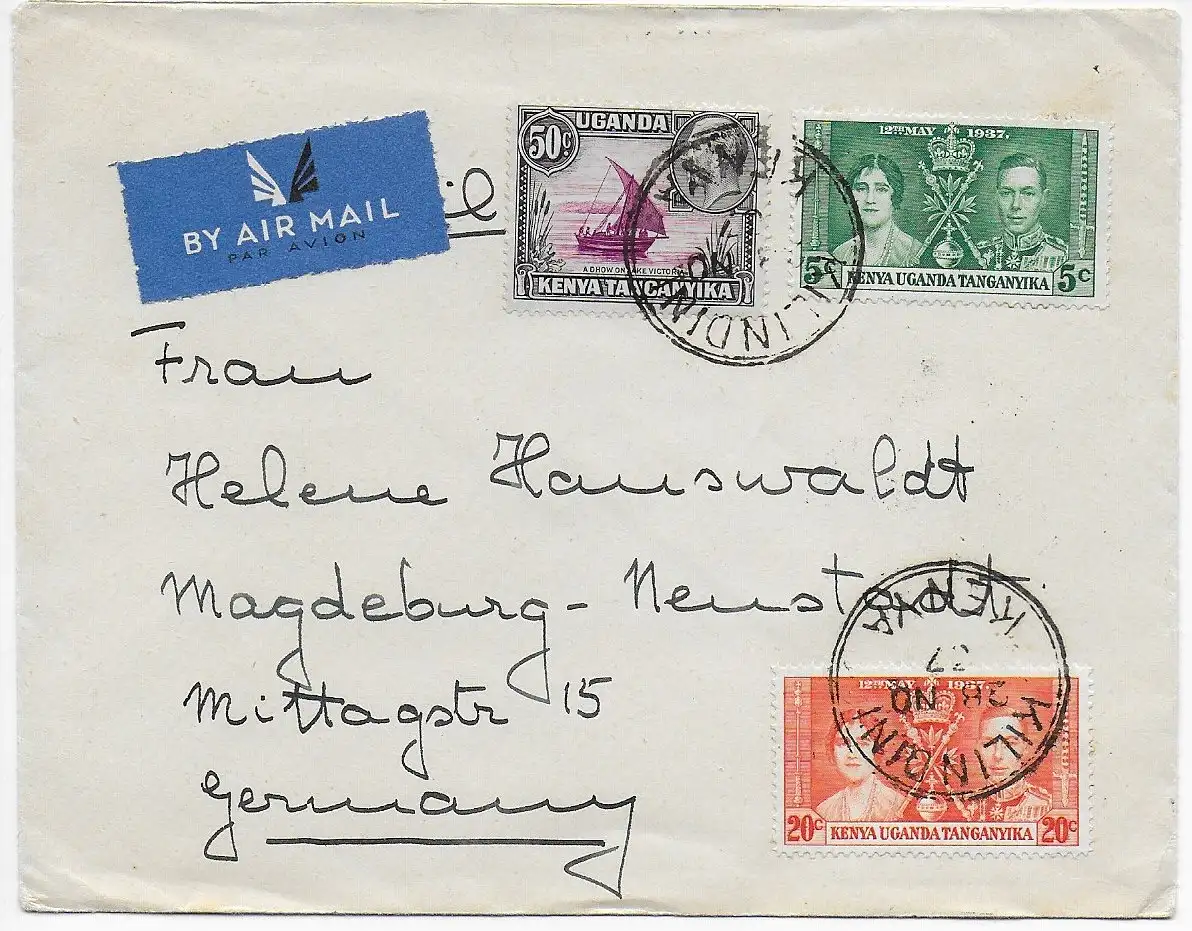 BY AIR MAIL
PAR AVION
il
UGANDA
50c
A DHOW ON LAKE VICTORIA
KENYA TANGANYIKA
12TH MAY 1937.
5c KENYA UGANDA TANGANYIKA 5c
KILINDINI
KENYA
NO
Frau
Helene Hauswaldt
Magdeburg - Neustadt
Mittagstr 15
Germany
12TH MAY 1937.
20c KENYA UGANDA TANGANYIKA 20c
KILINDINI
28 NO
37
KENYA